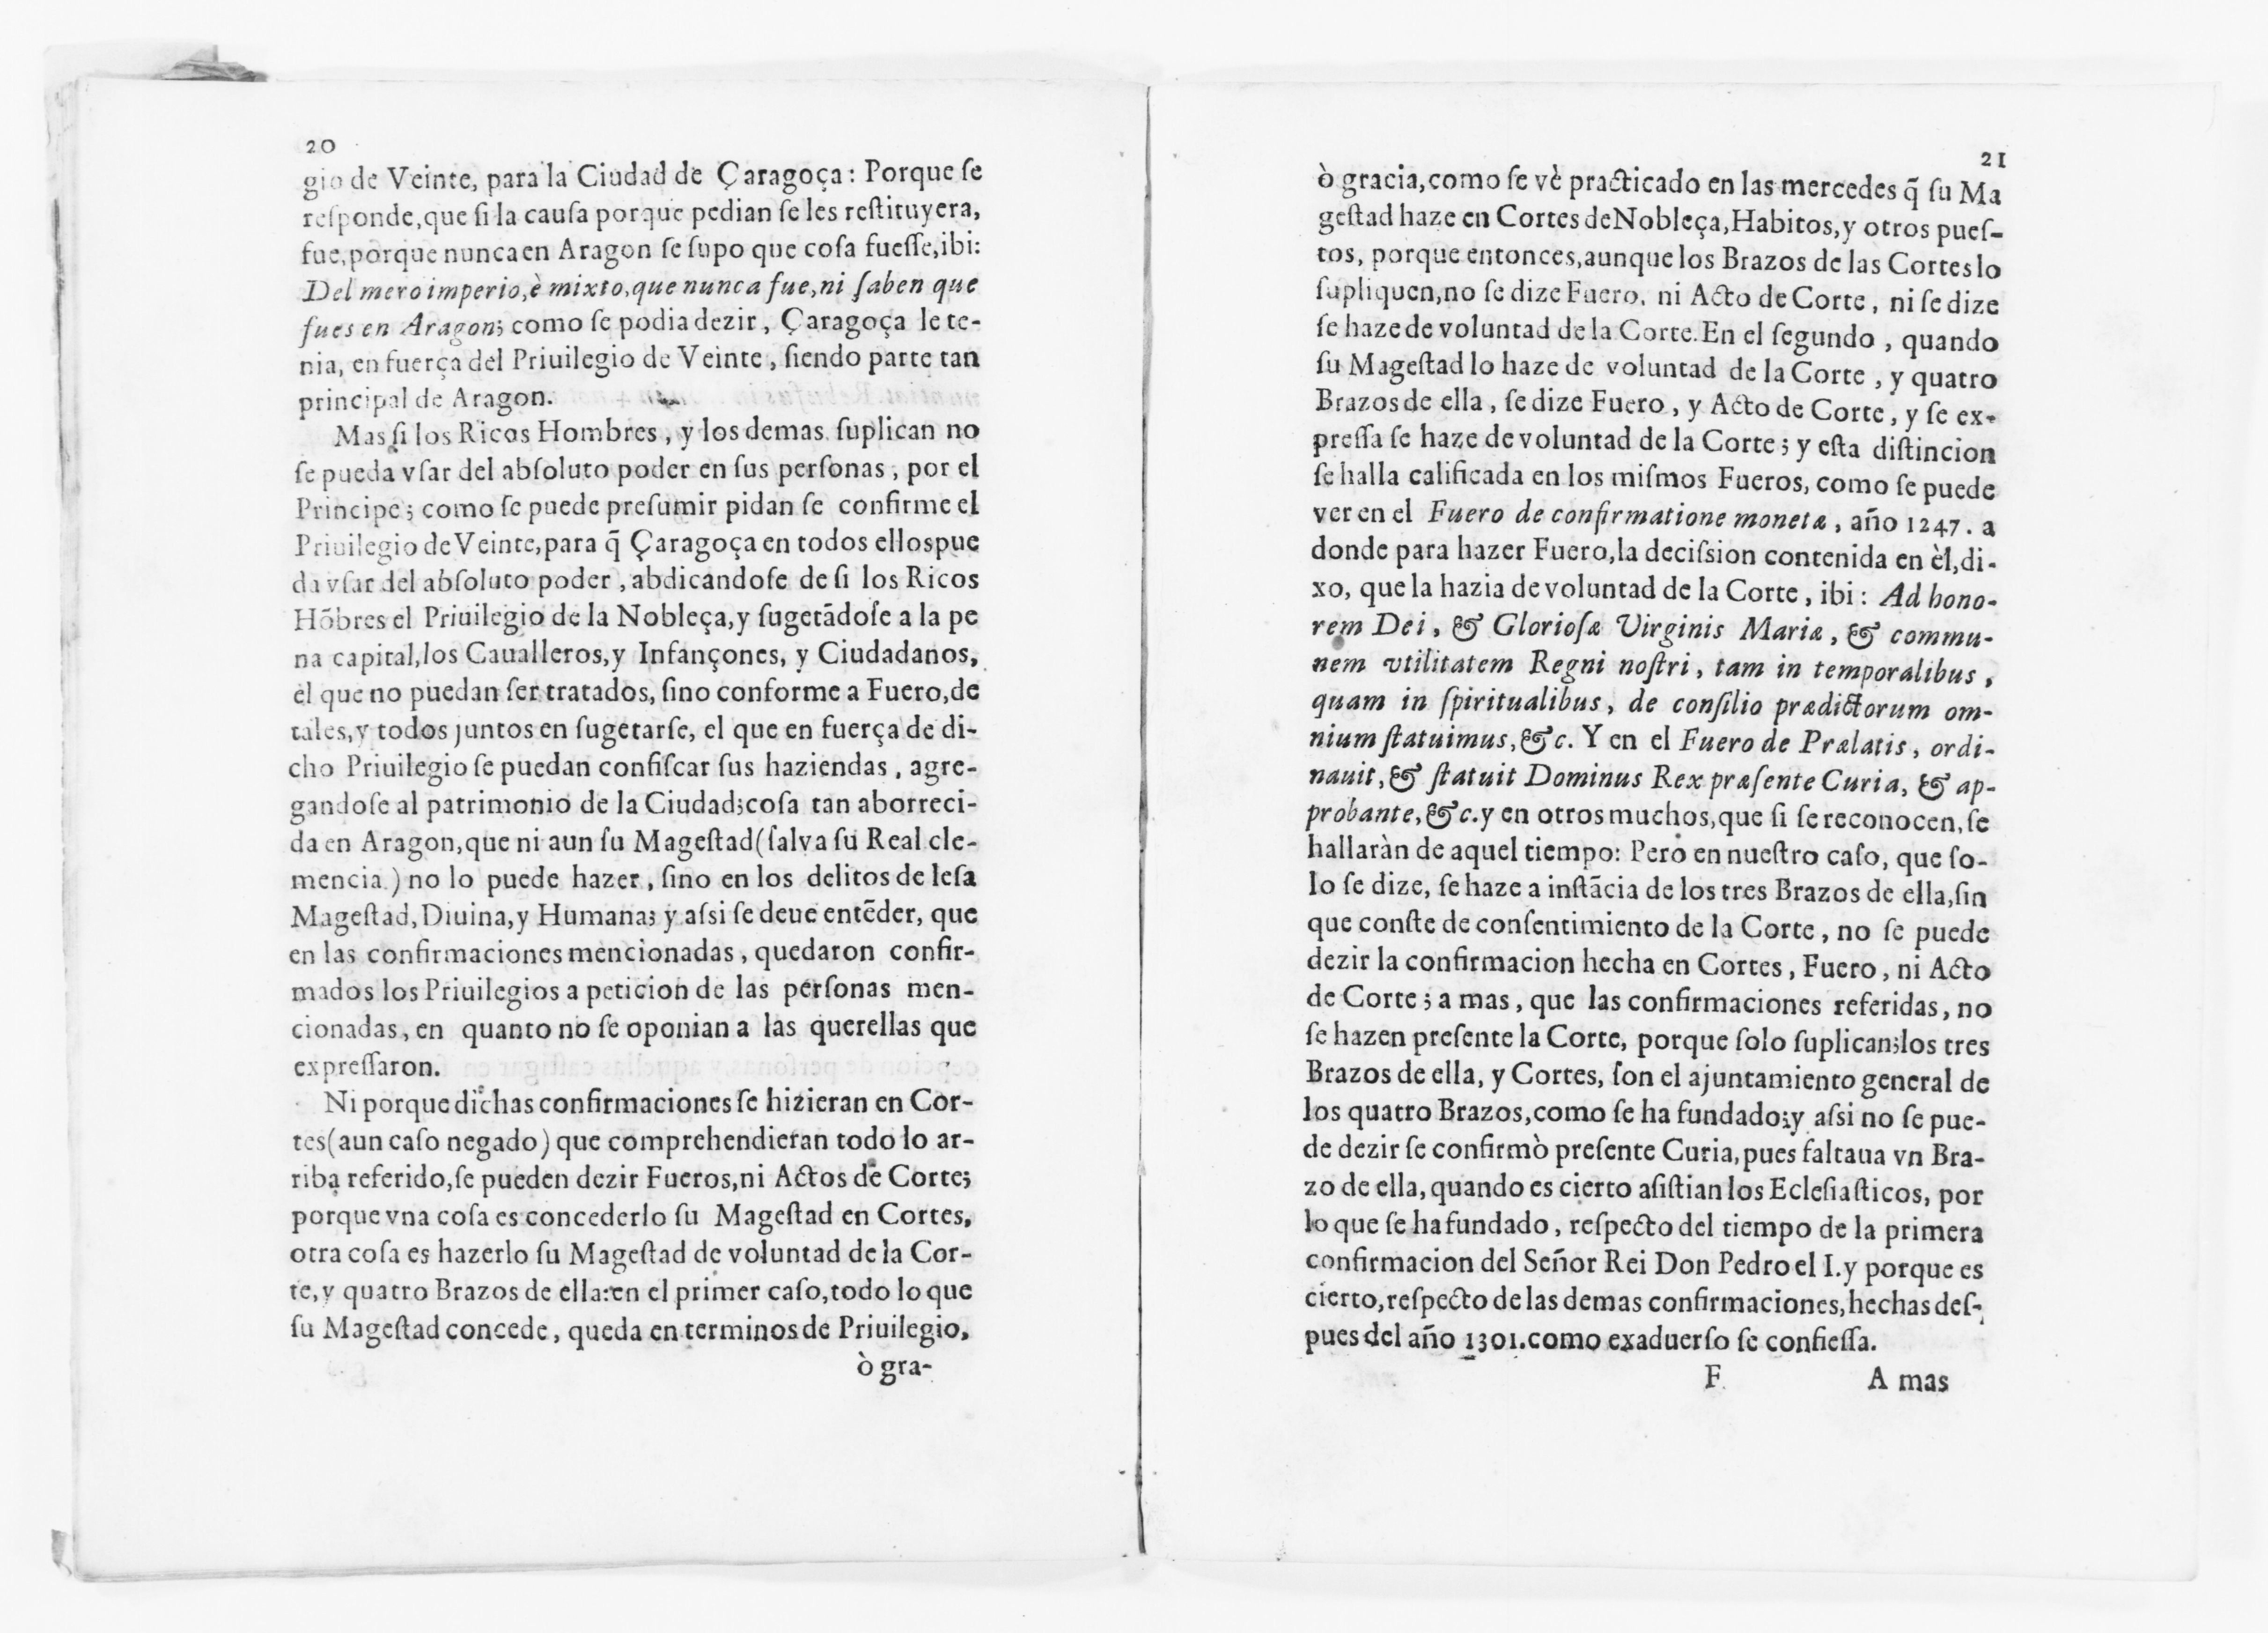 20
gio de Veinte, para la Ciudad de Çaragoça: Porque ſe
reſponde, que ſi la cauſa porque pedian ſe les reſtituyera,
fue, porque nunca en Aragon ſe ſupo que coſa fueſſe, ibi:
Del mero imperio, è mixto, que nunca fue, ni ſaben que
fues en Aragon; como ſe podia dezir, Çaragoça le te-
nia, en fuerça del Priuilegio de Veinte, ſiendo parte tan
principal de Aragon.
Mas ſi los Ricos Hombres, y los demas ſuplican no
ſe pueda vſar del abſoluto poder en ſus perſonas, por el
Principe; como ſe puede preſumir pidan ſe confirme el
Priuilegio de Veinte, para q̃ Çaragoça en todos ellos pue
da vſar del abſoluto poder, abdicandoſe de ſi los Ricos
Hõbres el Priuilegio de la Nobleça, y ſugetãdoſe a la pe
na capital, los Caualleros, y Infançones, y Ciudadanos,
el que no puedan ſer tratados, ſino conforme a Fuero, de
tales, y todos juntos en ſugetarſe, el que en fuerça de di-
cho Priuilegio ſe puedan confiſcar ſus haziendas, agre-
gandoſe al patrimonio de la Ciudad; coſa tan aborreci-
da en Aragon, que ni aun ſu Mageſtad (ſalva ſu Real cle-
mencia) no lo puede hazer, ſino en los delitos de leſa
Mageſtad, Diuina, y Humana; y aſsi ſe deue entẽder, que
en las confirmaciones mencionadas, quedaron confir-
mados los Priuilegios a peticion de las perſonas men-
cionadas, en quanto no ſe oponian a las querellas que
expreſſaron.
Ni porque dichas confirmaciones ſe hizieran en Cor-
tes (aun caſo negado) que comprehendieran todo lo ar-
riba referido, ſe pueden dezir Fueros, ni Actos de Corte;
porque vna coſa es concederlo ſu Mageſtad en Cortes,
otra coſa es hazerlo ſu Mageſtad de voluntad de la Cor-
te, y quatro Brazos de ella: en el primer caſo, todo lo que
ſu Mageſtad concede, queda en terminos de Priuilegio,
ò gra-
21
ò gracia, como ſe vè practicado en las mercedes q̃ ſu Ma
geſtad haze en Cortes de Nobleça, Habitos, y otros pueſ-
tos, porque entonces, aunque los Brazos de las Cortes lo
ſupliquen, no ſe dize Fuero, ni Acto de Corte, ni ſe dize
ſe haze de voluntad de la Corte. En el ſegundo, quando
ſu Mageſtad lo haze de voluntad de la Corte, y quatro
Brazos de ella, ſe dize Fuero, y Acto de Corte, y ſe ex-
preſſa ſe haze de voluntad de la Corte; y eſta diſtincion
ſe halla calificada en los miſmos Fueros, como ſe puede
ver en el Fuero de confirmatione monetæ, año 1247. a
donde para hazer Fuero, la deciſsion contenida en èl, di-
xo, que la hazia de voluntad de la Corte, ibi: Ad hono-
rem Dei, & Glorioſæ Virginis Mariæ, & commu-
nem vtilitatem Regni noſtri, tam in temporalibus,
quam in ſpiritualibus, de conſilio prædictorum om-
nium ſtatuimus, &c. Y en el Fuero de Prælatis, ordi-
nauit, & ſtatuit Dominus Rex præſente Curia, & ap-
probante, &c. y en otros muchos, que ſi ſe reconocen, ſe
hallaràn de aquel tiempo: Pero en nueſtro caſo, que ſo-
lo ſe dize, ſe haze a inſtãcia de los tres Brazos de ella, ſin
que conſte de conſentimiento de la Corte, no ſe puede
dezir la confirmacion hecha en Cortes, Fuero, ni Acto
de Corte; a mas, que las confirmaciones referidas, no
ſe hazen preſente la Corte, porque ſolo ſuplican; los tres
Brazos de ella, y Cortes, ſon el ajuntamiento general de
los quatro Brazos, como ſe ha fundado; y aſsi no ſe pue-
de dezir ſe confirmò preſente Curia, pues faltaua vn Bra-
zo de ella, quando es cierto aſiſtian los Ecleſiaſticos, por
lo que ſe ha fundado, reſpecto del tiempo de la primera
confirmacion del Señor Rei Don Pedro el I. y porque es
cierto, reſpecto de las demas confirmaciones, hechas deſ-
pues del año 1301. como exaduerſo ſe confieſſa.
F A mas